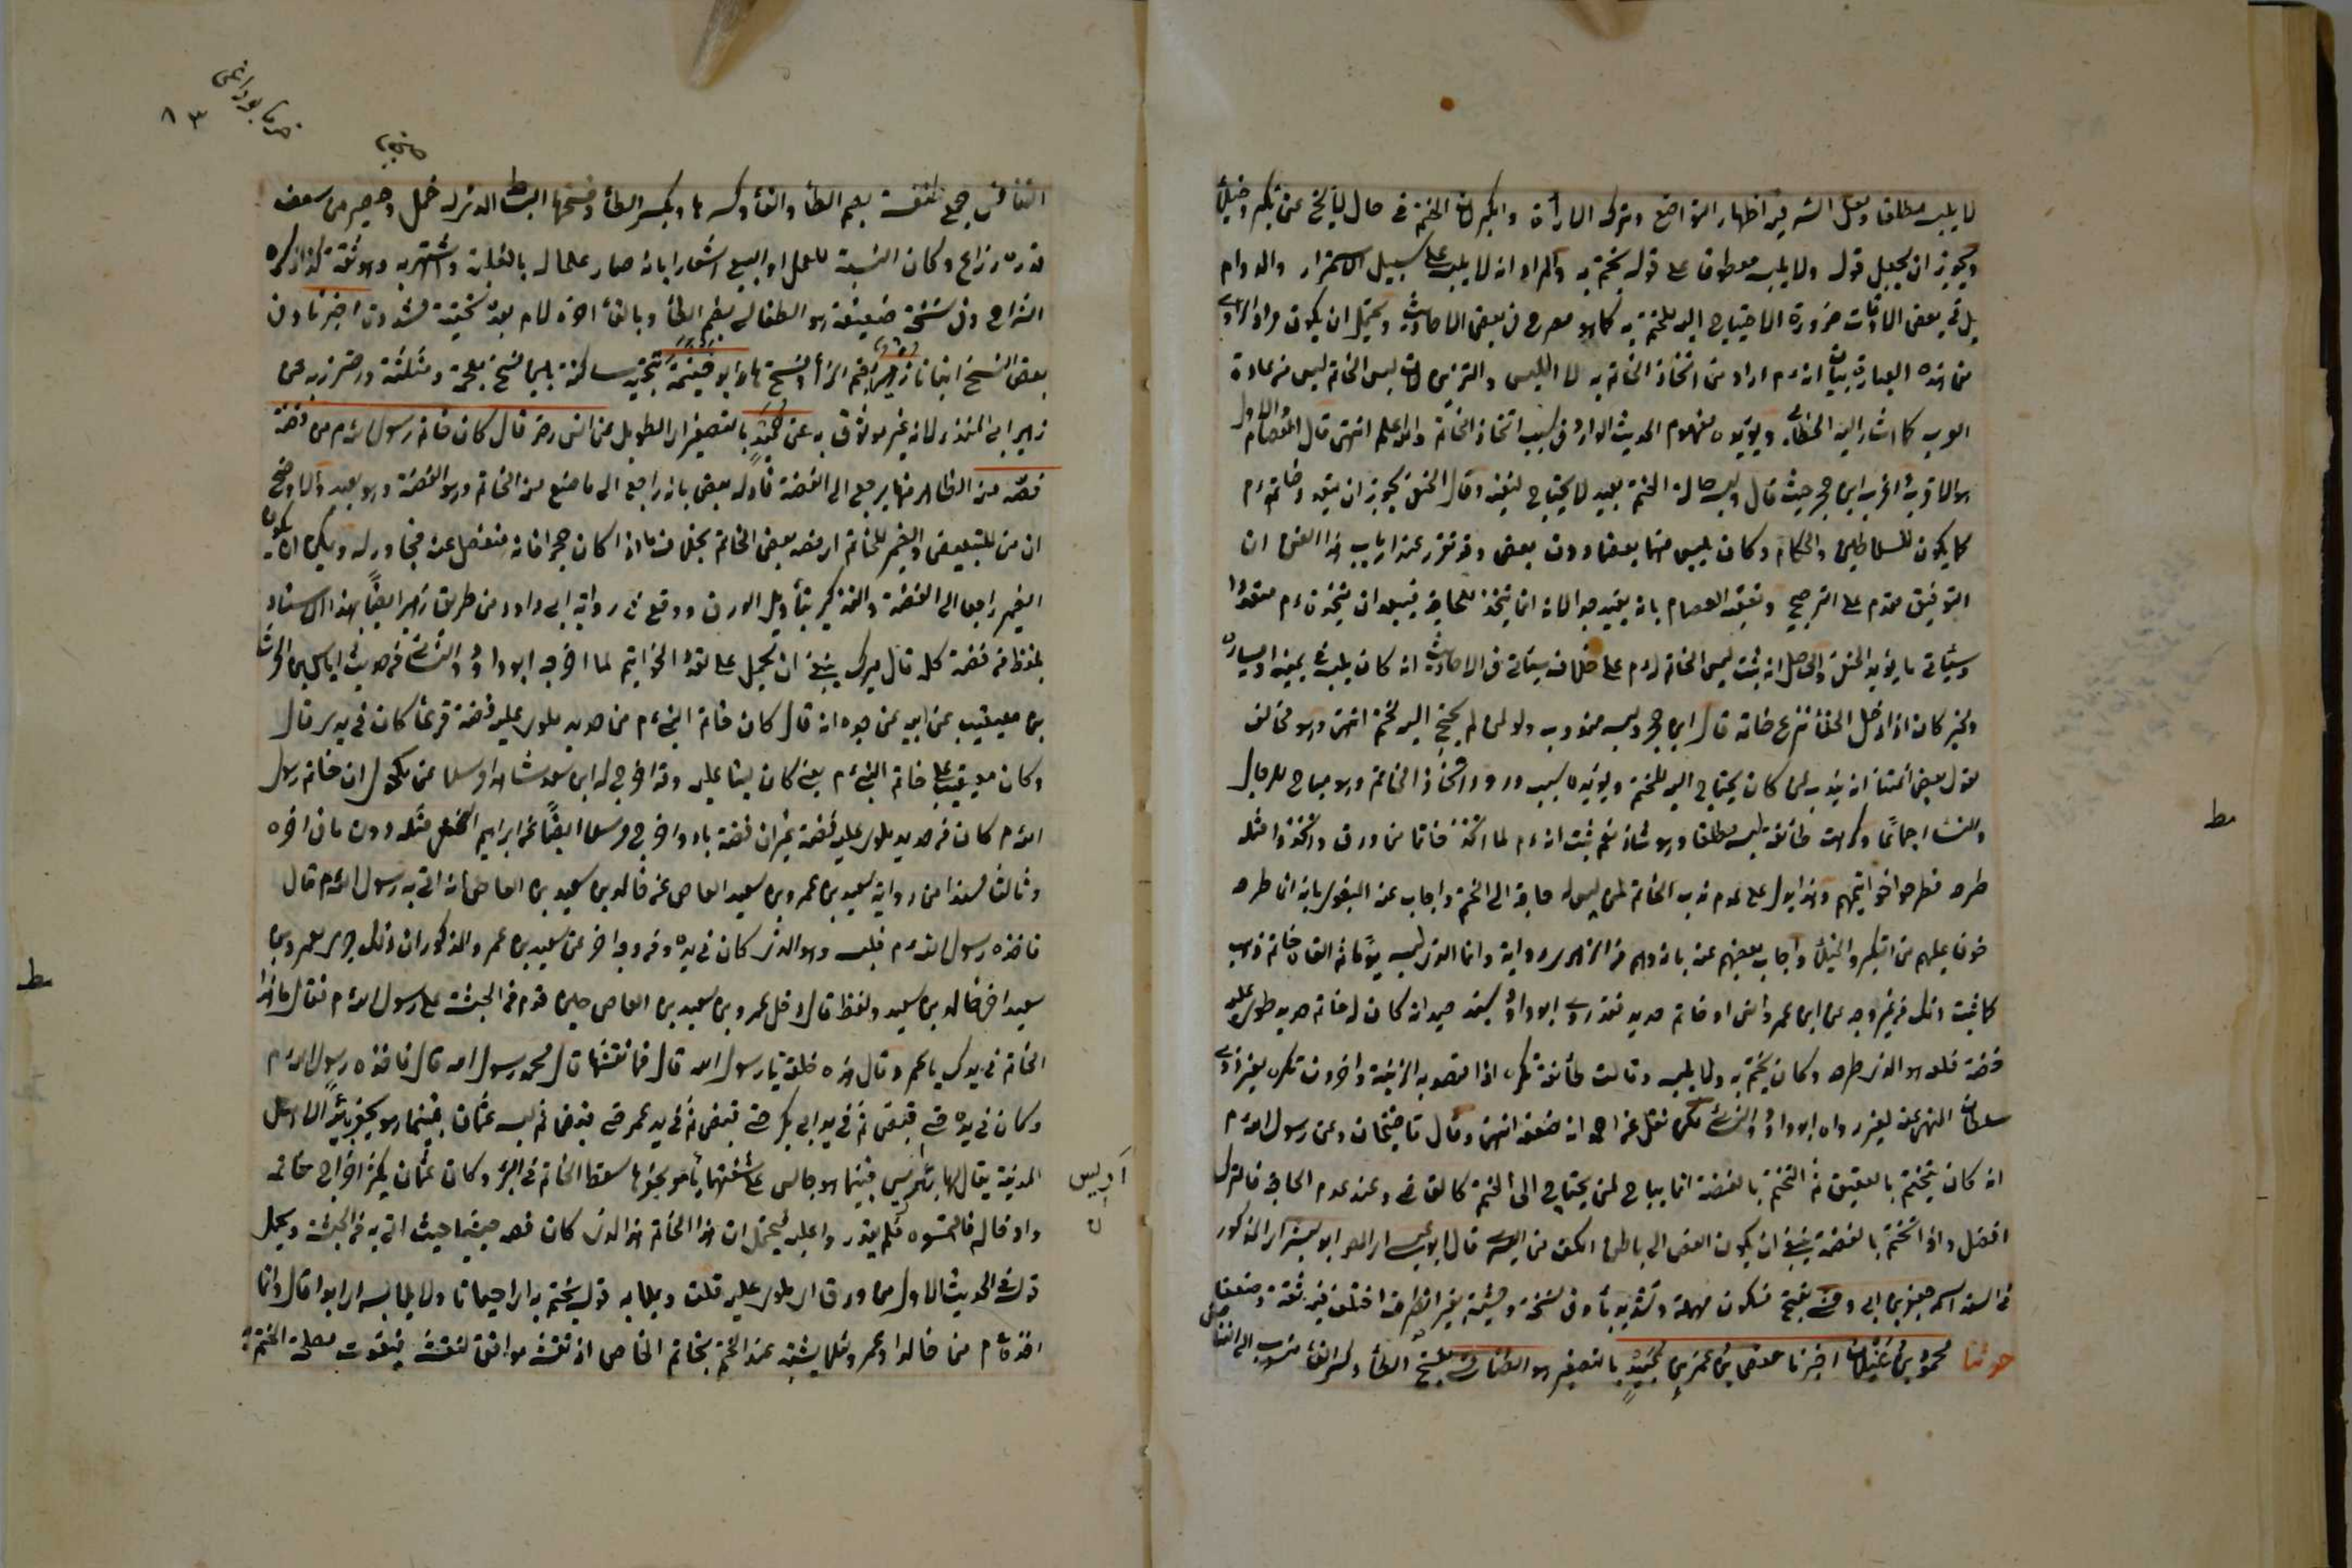 لا يلبسه مطلقا ولعل السر فيه اظهار التواضع وترك الاراة والكبر لان الختم في حال لبسه لا يخ عن تكبر وخيلاء
ويجوز ان يجعل قوله ولا يلبسه معطوفا على قوله يختم به والمراد انه لا يلبسه على سبيل الاستمرار والدوام
بل في بعض الاوقات ضرورة الاحتياج اليه للختم به كما هو مصرح في بعض الاحاديث ويحتمل ان يكون مراد الراوي
من هذه العبارة بيان انه م اراد من اتخاذ الخاتم به لا اللبس والتزين لان لبس الخاتم ليس من عادة
العرب كما اشار اليه الخطابي ويؤيده مفهوم الحديث الوارد في سبب اتخاذ الخاتم والله اعلم انتهى قال العصام الاول
هو الاقرب واغرب ابن حجر حيث قال ولبسه حالة الختم بعيد لا يحتاج لنفيه وقال الحنفي يجوز ان يتعدد خاتمه م
كما يكون للسلاطين والحكام وكان يلبس منها بعضا دون بعض وقد تقرر عند ارباب هذا الفن ان
التوفيق مقدم على الترجيح وتعقبه العصام بانه بعيد جدا لانه انما يتخذ للحاجة فيبعد ان يتخذ م متعددا
وسيأتي ما يؤيد الحنفي والحاصل انه ثبت لبس الخاتم له م على خلاف سيأتي في الاحاديث انه كان يلبسه في يمينه او يساره
ولخبر كان اذا دخل الخلاء نزع خاتمه قال ابن حجر ولبسه مندوب ولو لمن لم يحتج اليه لختم انتهى وهو مخالف
لقول بعض ائمتنا انه يندب لمن كان يحتاج اليه للختم ويؤيده سبب ورود اتخاذ الخاتم وهو مباح للرجال
والنساء اجماعا وكرهت طائفة لبسه مطلقا وهو شاذ نعم ثبت انه م لما اتخذ خاتما من ورق واتخذوا مثله
طرحه فطرحوا خواتيمهم وهذا يدل على عدم ندب الخاتم لمن ليس له حاجة الى الختم واجاب عنه البغوي بانه انما طرحه
خوفا عليهم من التكبر والخيلاء واجاب بعضهم عنه بانه وهم من الزهري رواية وانما الذي لبسه يوما ثم القاه خاتم ذهب
كما ثبت ذلك من غير وجه عن ابن عمر وانس او خاتم حديد فقد روى ابو داود بسند جيد انه كان له خاتم حديد ملوي عليه
فضة فلعله هو الذي طرحه وكان يختم به ولا يلبسه وقالت طائفة يكره اذا قصد به الزينة واخرون يكره لغير ذي
سلطان للنهي عنه لغيره رواه ابو داود والنسائي لكن نقل عن احمد انه ضعفه انتهى وقال قاضيخان وعن رسول الله م
انه كان يتختم بالعقيق ثم التختم بالفضة انما يباح لمن يحتاج الى الختم كالقاضي وعند عدم الحاجة فالترك
افضل واذا تختم بالفضة ينبغي ان يكون الفص الى باطن الكف من اليسرى قال ابو عيسى اي المصر ابو بشر اي المذكور
في السند اسمه جعفر بن ابي وحشية بفتح فسكون مهملة وتشديد ياء وفي نسخة وحشية بغير انصراف اختلف فيه ثقة وضعفا
حدثنا محمود بن غيلان اخبرنا حفص بن عمر بن عبيد بالتصغير هو الطنافسي بفتح الطاء وكسر الفاء منسوب الى الطنا
فس
مط
صحيفه
٨٣
الطنافس جمع طنفسة بضم الطاء والفاء وكسرها وبكسر الطاء وفتحها البساط الذي له خمل وحصير من سعف
قدره ذراع وكان النسبة للعمل او البيع اشعارا بانه صار علما له بالغلبة واشتهر به وهو ثقة كذا ذكره
الشراح وفي نسخة ضعيفة هو الطفالي بضم الطاء وبالفاء اخره لام بعده تحتية مشددة اخبرنا وفي
بعض النسخ انبانا زهير بضم الزاء وفتح ها ابو خيثمة بتحتية ساكنة بين فتح معجمة ومثلثة واحترز به عن
زهير ابي المنذر لانه غير موثوق به عن حميد بالتصغير اي الطويل عن انس رضى قال كان خاتم رسول الله م من فضة
فصه منه الظاهر منها يرجع الى الفضة فاوله بعض بانه راجع الى ما صنع منه الخاتم وهو الفضة وهو بعيد والاوضح
ان من للتبعيض والضمير للخاتم اي فصه بعض الخاتم بخلاف ما اذا كان حجرا فانه منفصل عنه مجاور له ويمكن ان يكون
الضمير راجعا الى الفضة والتذكير بتأويل الورق ووقع في رواية ابي داود من طريق زهير ايضا بهذا الاسناد
بلفظ من فضة كله قال ميرك ينبغي ان يحمل على تعدد الخواتيم لما اخرجه ابو داود والنسائي من حديث اياس بن الحارث
بن معيقيب عن ابيه عن جده انه قال كان خاتم النبي م من حديد ملوي عليه فضة فربما كان في يدي قال
وكان معيقيب على خاتم النبي م يعني كان امينا عليه وقد اخرج له ابن سعد شاهدا مرسلا عن مكحول ان خاتم رسول
الله م كان من حديد ملوي عليه فضة غير ان فصه باد واخرج مرسلا ايضا عن ابراهيم النخعي مثله دون ما في اخره
وثالثا مسندا من رواية سعيد بن عمرو بن سعيد العاص عن خالد بن سعيد بن العاص انه اتى به رسول الله م قال
فاخذه رسول الله م فلبسه وهو الذي كان في يده ومن وجه اخر عن سعيد بن عمر والمذكور ان ذلك جرى لعمرو بن
سعيد اخي خالد بن سعيد ولفظه قال دخل عمرو بن سعيد بن العاص حين قدم من الحبشة على رسول الله م فقال ما هذا
الخاتم في يدك يا عمر وقال هذه حلقة يا رسول الله قال فما نقشها قال محمد رسول الله قال فاخذه رسول الله م
وكان في يده حتى قبض ثم في يد ابي بكر حتى قبض ثم في يد عمر حتى قبض ثم لبسه عثمان فبينما هو يحفر بئرا لاهل
المدينة يقال لها بئر اريس فبينما هو جالس على شفتها يأمر بحفرها سقط الخاتم في البئر وكان عثمان يكثر اخراج خاتمه
وادخاله فالتمسوه فلم يقدروا عليه فيحتمل ان هذا الخاتم هو الذي كان فصه حبشيا حيث اتى به من الحبشة ويحمل
قوله في الحديث الاول من ورق اي ملوي عليه قلت ويلائمه قوله يختم به اي احيانا ولا يلبسه اي ابدا قال وانما
اخذه م من خالد او عمرو لئلا يشتبه عند الختم بخاتمه الخاص اذ نقشه موافق لنقشه فيفوت مصلحة الختم به
اريس
مط